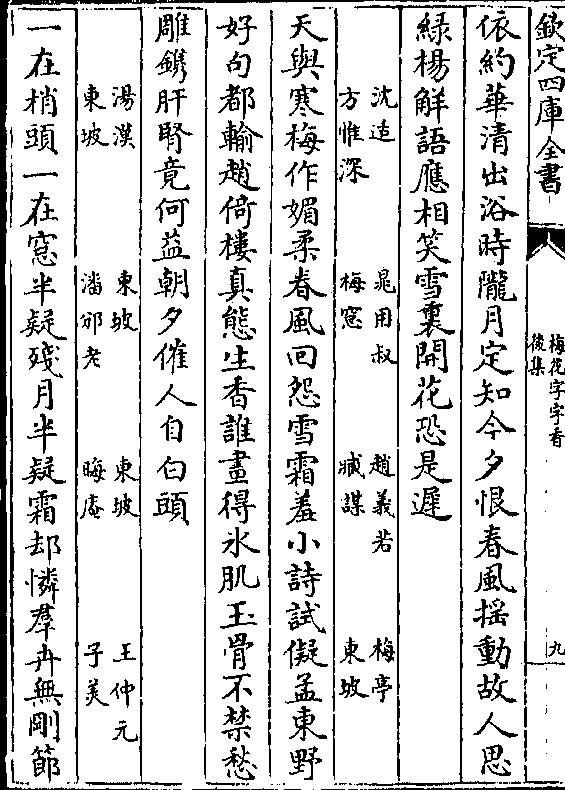 欽定四庫全書
梅花字字香後集
九
依約華清出浴時隴月定知今夕恨春風揺動故人思
緑楊解語應相笑雪裏開花恐是遲
沈逵 晁用叔 趙義若 梅亭
方惟深 梅窓 臧謀 東坡
天與寒梅作媚柔春風回怨雪霜羞小詩試儗孟東野
好句都輸趙倚樓真態生香誰畫得氷肌玉骨不禁愁
雕鎸肝腎竟何益朝夕催人自白頭
湯漢 東坡 東坡 王仲元
東坡 潘邠老 晦庵 子美
一在梢頭一在窓半疑殘月半疑霜却憐羣卉無剛節